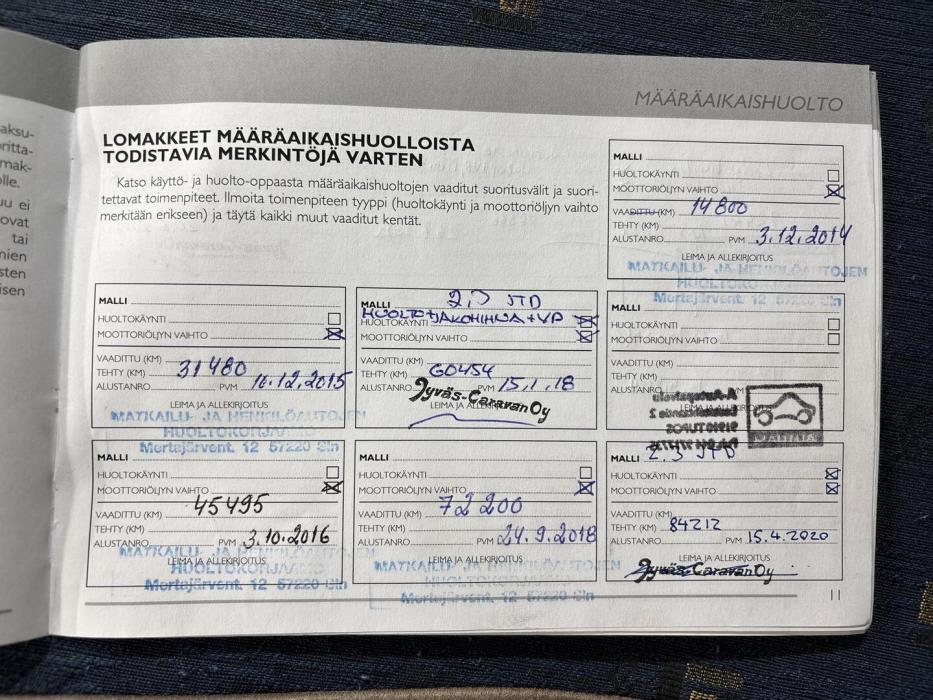 aksu-
oritta-
mak-
olle.
uu ei
ovat
tai
nien
sten
isen
MÄÄRÄAIKAISHUOLTO
LOMAKKEET MÄÄRÄAIKAISHUOLLOISTA
TODISTAVIA MERKINTÖJÄ VARTEN
Katso käyttö- ja huolto-oppaasta määräaikaishuoltojen vaaditut suoritusvälit ja suori-
tettavat toimenpiteet. Ilmoita toimenpiteen tyyppi (huoltokäynti ja moottoriöljyn vaihto
merkitään erikseen) ja täytä kaikki muut vaaditut kentät.
MALLI
HUOLTOKÄYNTI
MOOTTORIÖLJYN VAIHTO
VAADITTU (KM) 14800
TEHTY (KM)
ALUSTANRO PVM 3.12.2014
LEIMA JA ALLEKIRJOITUS
MATKAILU- JA HENKILÖAUTOJEN
HUOLTOKORJAAMO
Mertajärvent. 12 57220 Sln
MALLI
HUOLTOKÄYNTI
MOOTTORIÖLJYN VAIHTO
VAADITTU (KM)
TEHTY (KM) 31480
ALUSTANRO PVM 16.12.2015
LEIMA JA ALLEKIRJOITUS
MATKAILU- JA HENKILÖAUTOJEN
HUOLTOKORJAAMO
Mertajärvent. 12 57220 Sln
MALLI 2,3 JTD
HUOLTO+JAKOHIHNA+VP
HUOLTOKÄYNTI
MOOTTORIÖLJYN VAIHTO
VAADITTU (KM)
TEHTY (KM) 60454
ALUSTANRO PVM 15.1.18
LEIMA JA ALLEKIRJOITUS
Jyväs-Caravan Oy
MALLI
HUOLTOKÄYNTI
MOOTTORIÖLJYN VAIHTO
VAADITTU (KM)
TEHTY (KM)
ALUSTANRO PVM
MALLI
HUOLTOKÄYNTI
MOOTTORIÖLJYN VAIHTO
45495
VAADITTU (KM)
TEHTY (KM)
ALUSTANRO PVM 3.10.2016
LEIMA JA ALLEKIRJOITUS
MATKAILU- JA HENKILÖAUTOJEN
HUOLTOKORJAAMO
Mertajärvent. 12 57220 Sln
MALLI
HUOLTOKÄYNTI
MOOTTORIÖLJYN VAIHTO
VAADITTU (KM) 72200
TEHTY (KM)
ALUSTANRO PVM 24.9.2018
LEIMA JA ALLEKIRJOITUS
MATKAILU- JA HENKILÖAUTOJEN
HUOLTOKORJAAMO
Mertajärvent. 12 57220 Sln
MALLI 2.3 JTD
HUOLTOKÄYNTI
MOOTTORIÖLJYN VAIHTO
VAADITTU (KM)
TEHTY (KM) 84212
ALUSTANRO PVM 15.4.2020
LEIMA JA ALLEKIRJOITUS
Jyväs-Caravan Oy
11